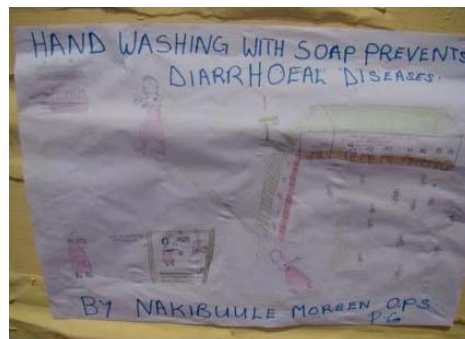 HAND WASHING WITH SOAP PREVENTS
DIARRHOEAL DISEASES.
BY NAKIBUULE MOREEN O.P.S.
P.6